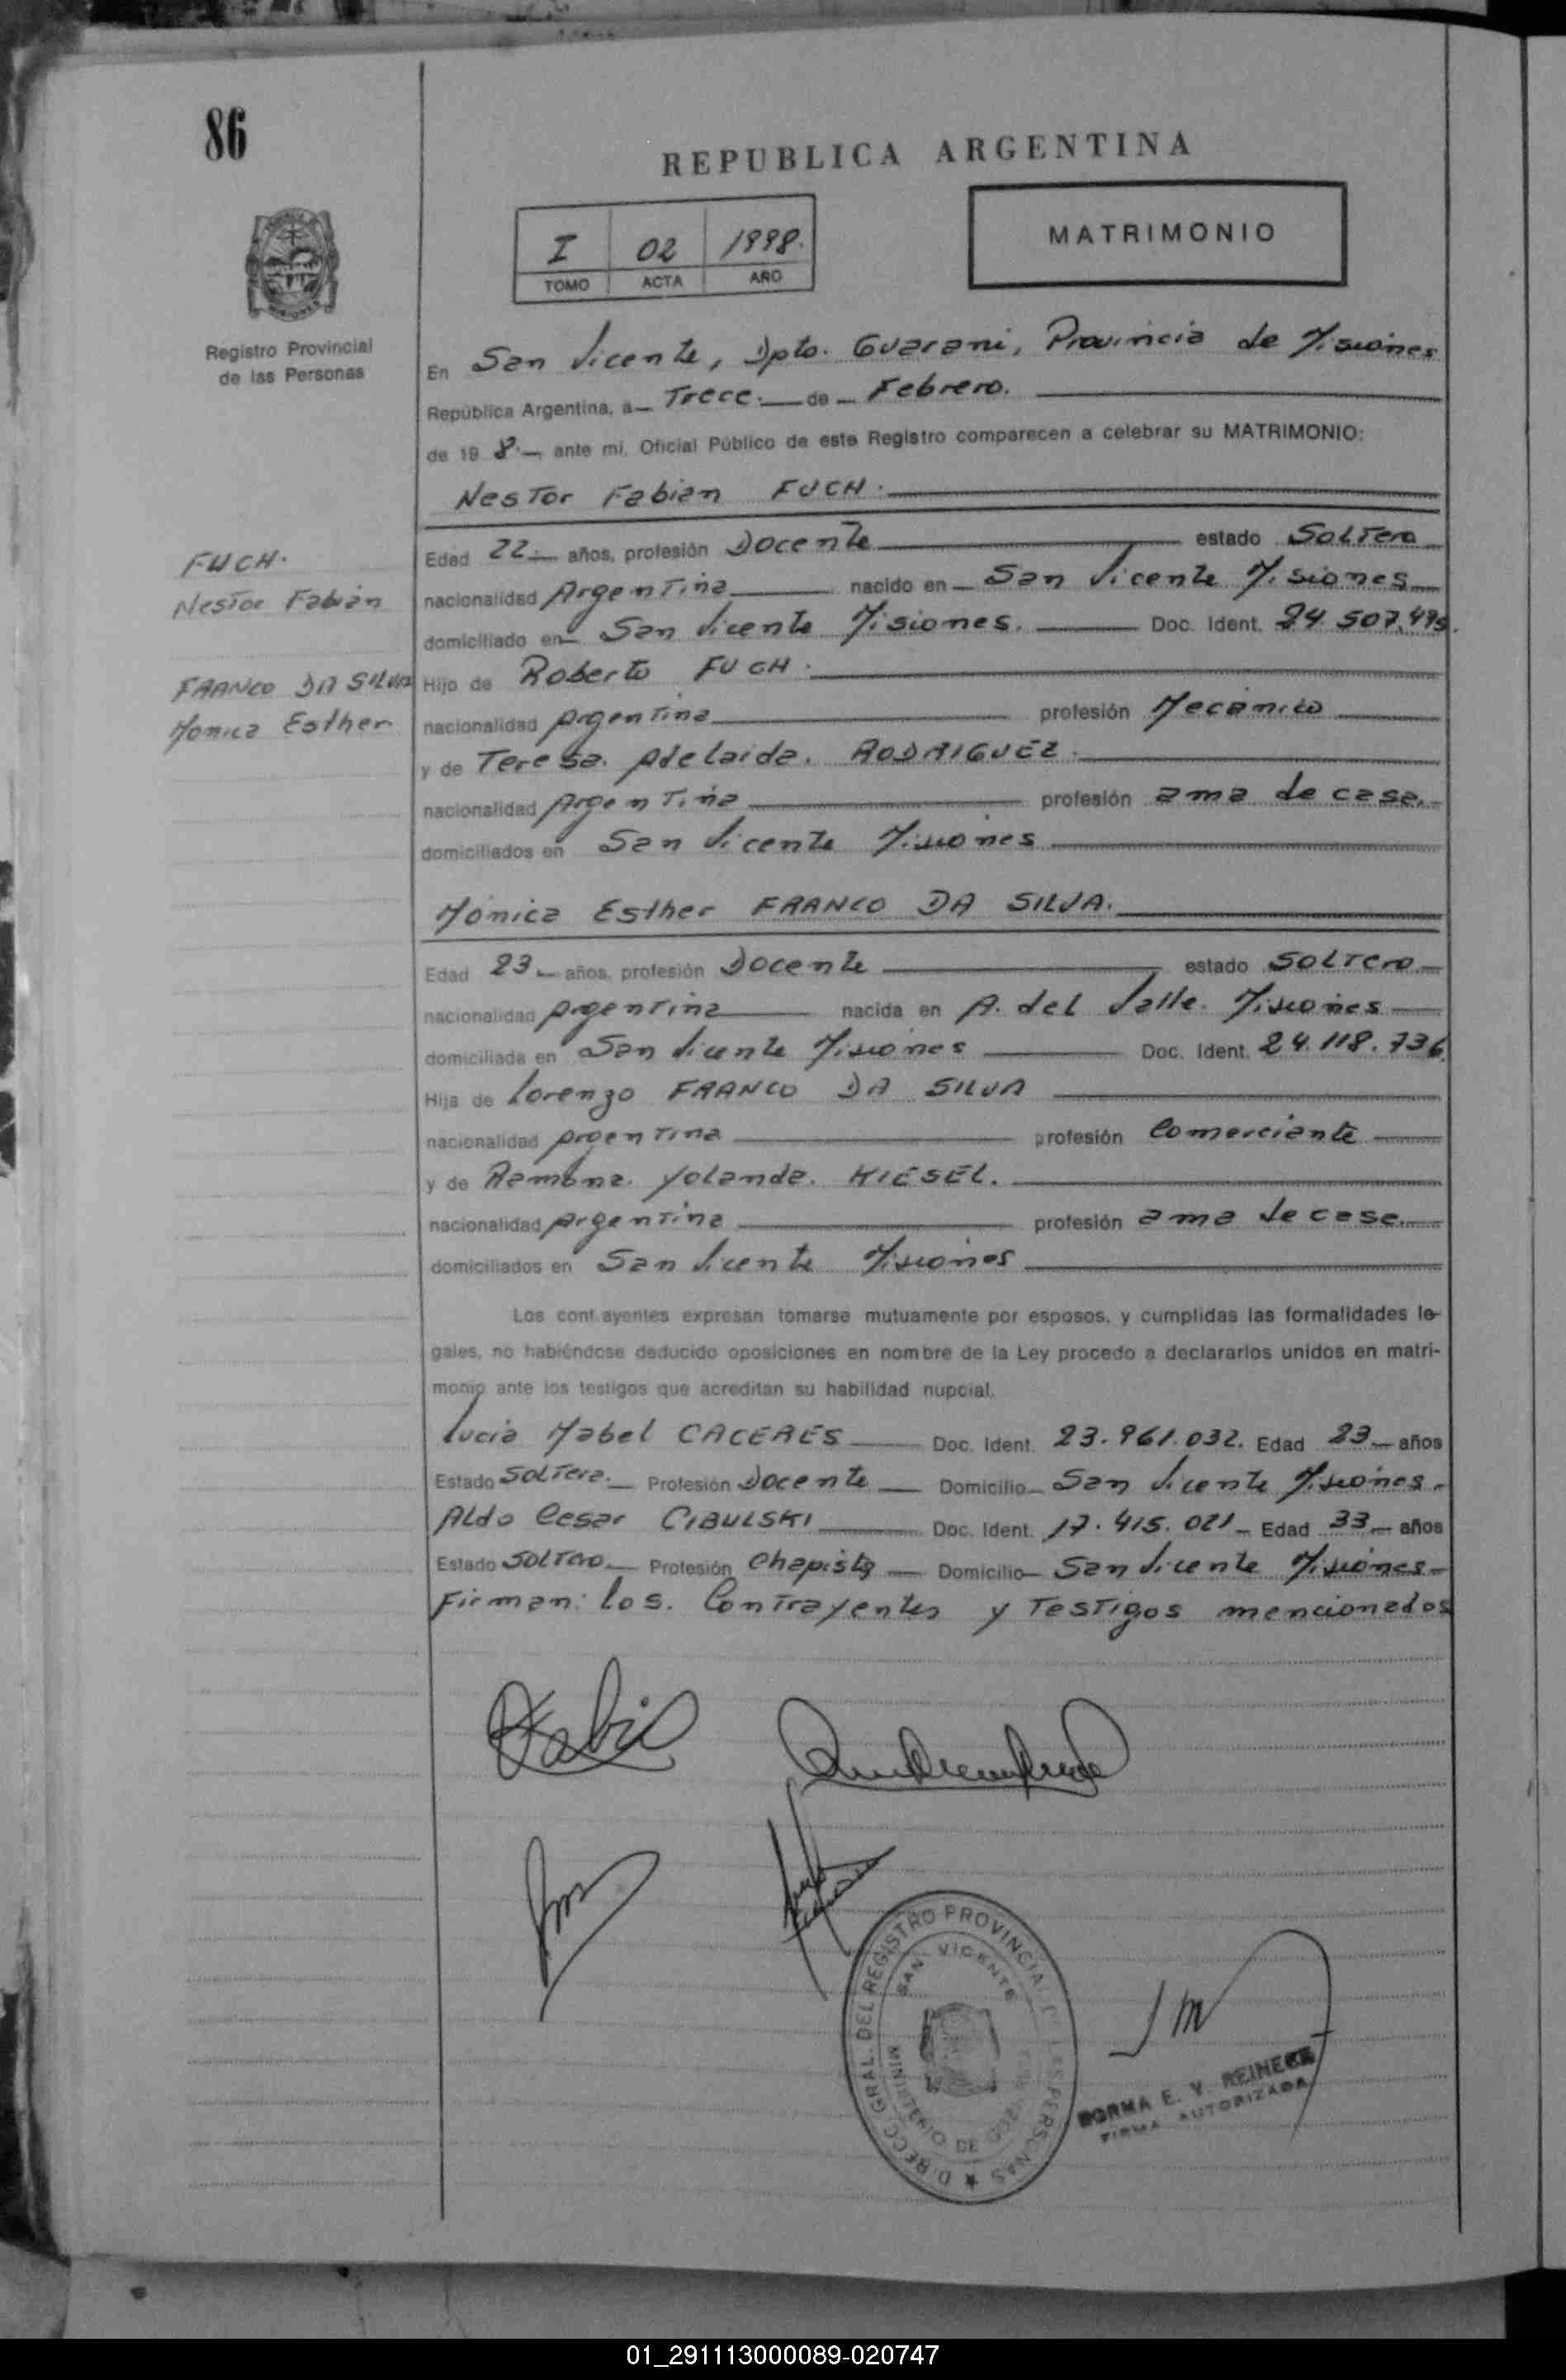 86
REPUBLICA ARGENTINA
I 02 1998.
TOMO ACTA AÑO
MATRIMONIO
Registro Provincial
de las Personas
En San Vicente, Dpto. Guarani, Provincia de Misiones
República Argentina, a Trece. de Febrero.
de 19 8. ante mi, Oficial Público de este Registro comparecen a celebrar su MATRIMONIO:
Nestor Fabian FUCH.
FUCH.
Nestor Fabián
FRANCO DA SILVA
Monica Esther
Edad 22 años, profesión Docente estado Soltero
nacionalidad Argentina nacido en San Vicente Misiones
domiciliado en San Vicente Misiones. Doc. Ident. 24.507.495.
Hijo de Roberto FUCH.
nacionalidad Argentina profesión Mecánico
y de Teresa. Adelaida. RODRIGUEZ.
nacionalidad Argentina profesión ama de casa.
domiciliados en San Vicente Misiones
Mónica Esther FRANCO DA SILVA.
Edad 23 años, profesión Docente estado Soltero
nacionalidad Argentina nacida en A. del Valle. Misiones
domiciliada en San Vicente Misiones Doc. Ident. 24.118.736.
Hija de Lorenzo FRANCO DA SILVA
nacionalidad Argentina profesión Comerciante
y de Ramona. Yolanda. KIESEL.
nacionalidad Argentina profesión ama de casa.
domiciliados en San Vicente Misiones
Los cont.ayentes expresan tomarse mutuamente por esposos, y cumplidas las formalidades le-
gales, no habiéndose deducido oposiciones en nombre de la Ley procedo a declararlos unidos en matri-
monio ante los testigos que acreditan su habilidad nupcial.
Lucia Mabel CACERES Doc. Ident. 23.961.032. Edad 23 años
Estado Soltera. Profesión Docente Domicilio San Vicente Misiones.
Aldo Cesar CIBULSKI Doc. Ident. 17.415.021 Edad 33 años
Estado Soltero. Profesión Chapista Domicilio San Vicente Misiones
Firman: los. Contrayentes y Testigos mencionados
DIRECC. GRAL. DEL REGISTRO PROVINCIAL DE LAS PERSONAS
SAN VICENTE
MINISTERIO DE
NORMA E. V. REINECK
FIRMA AUTORIZADA
01_291113000089-020747